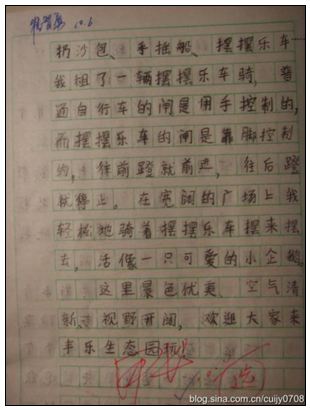 10.6
扔沙包、手摇船、摆摆乐车…
我租了一辆摆摆乐车骑，普
通自行车的闸是用手控制的，
而摆摆乐车的闸是靠脚控制
的，往前蹬就前进，往后蹬
就停止。在宽阔的广场上我
轻松地骑着摆摆乐车摆来摆
去，活像一只可爱的小企鹅。
这里景色优美、空气清
新、视野开阔，欢迎大家来
丰乐生态园玩。
blog.sina.com.cn/cuijy0708